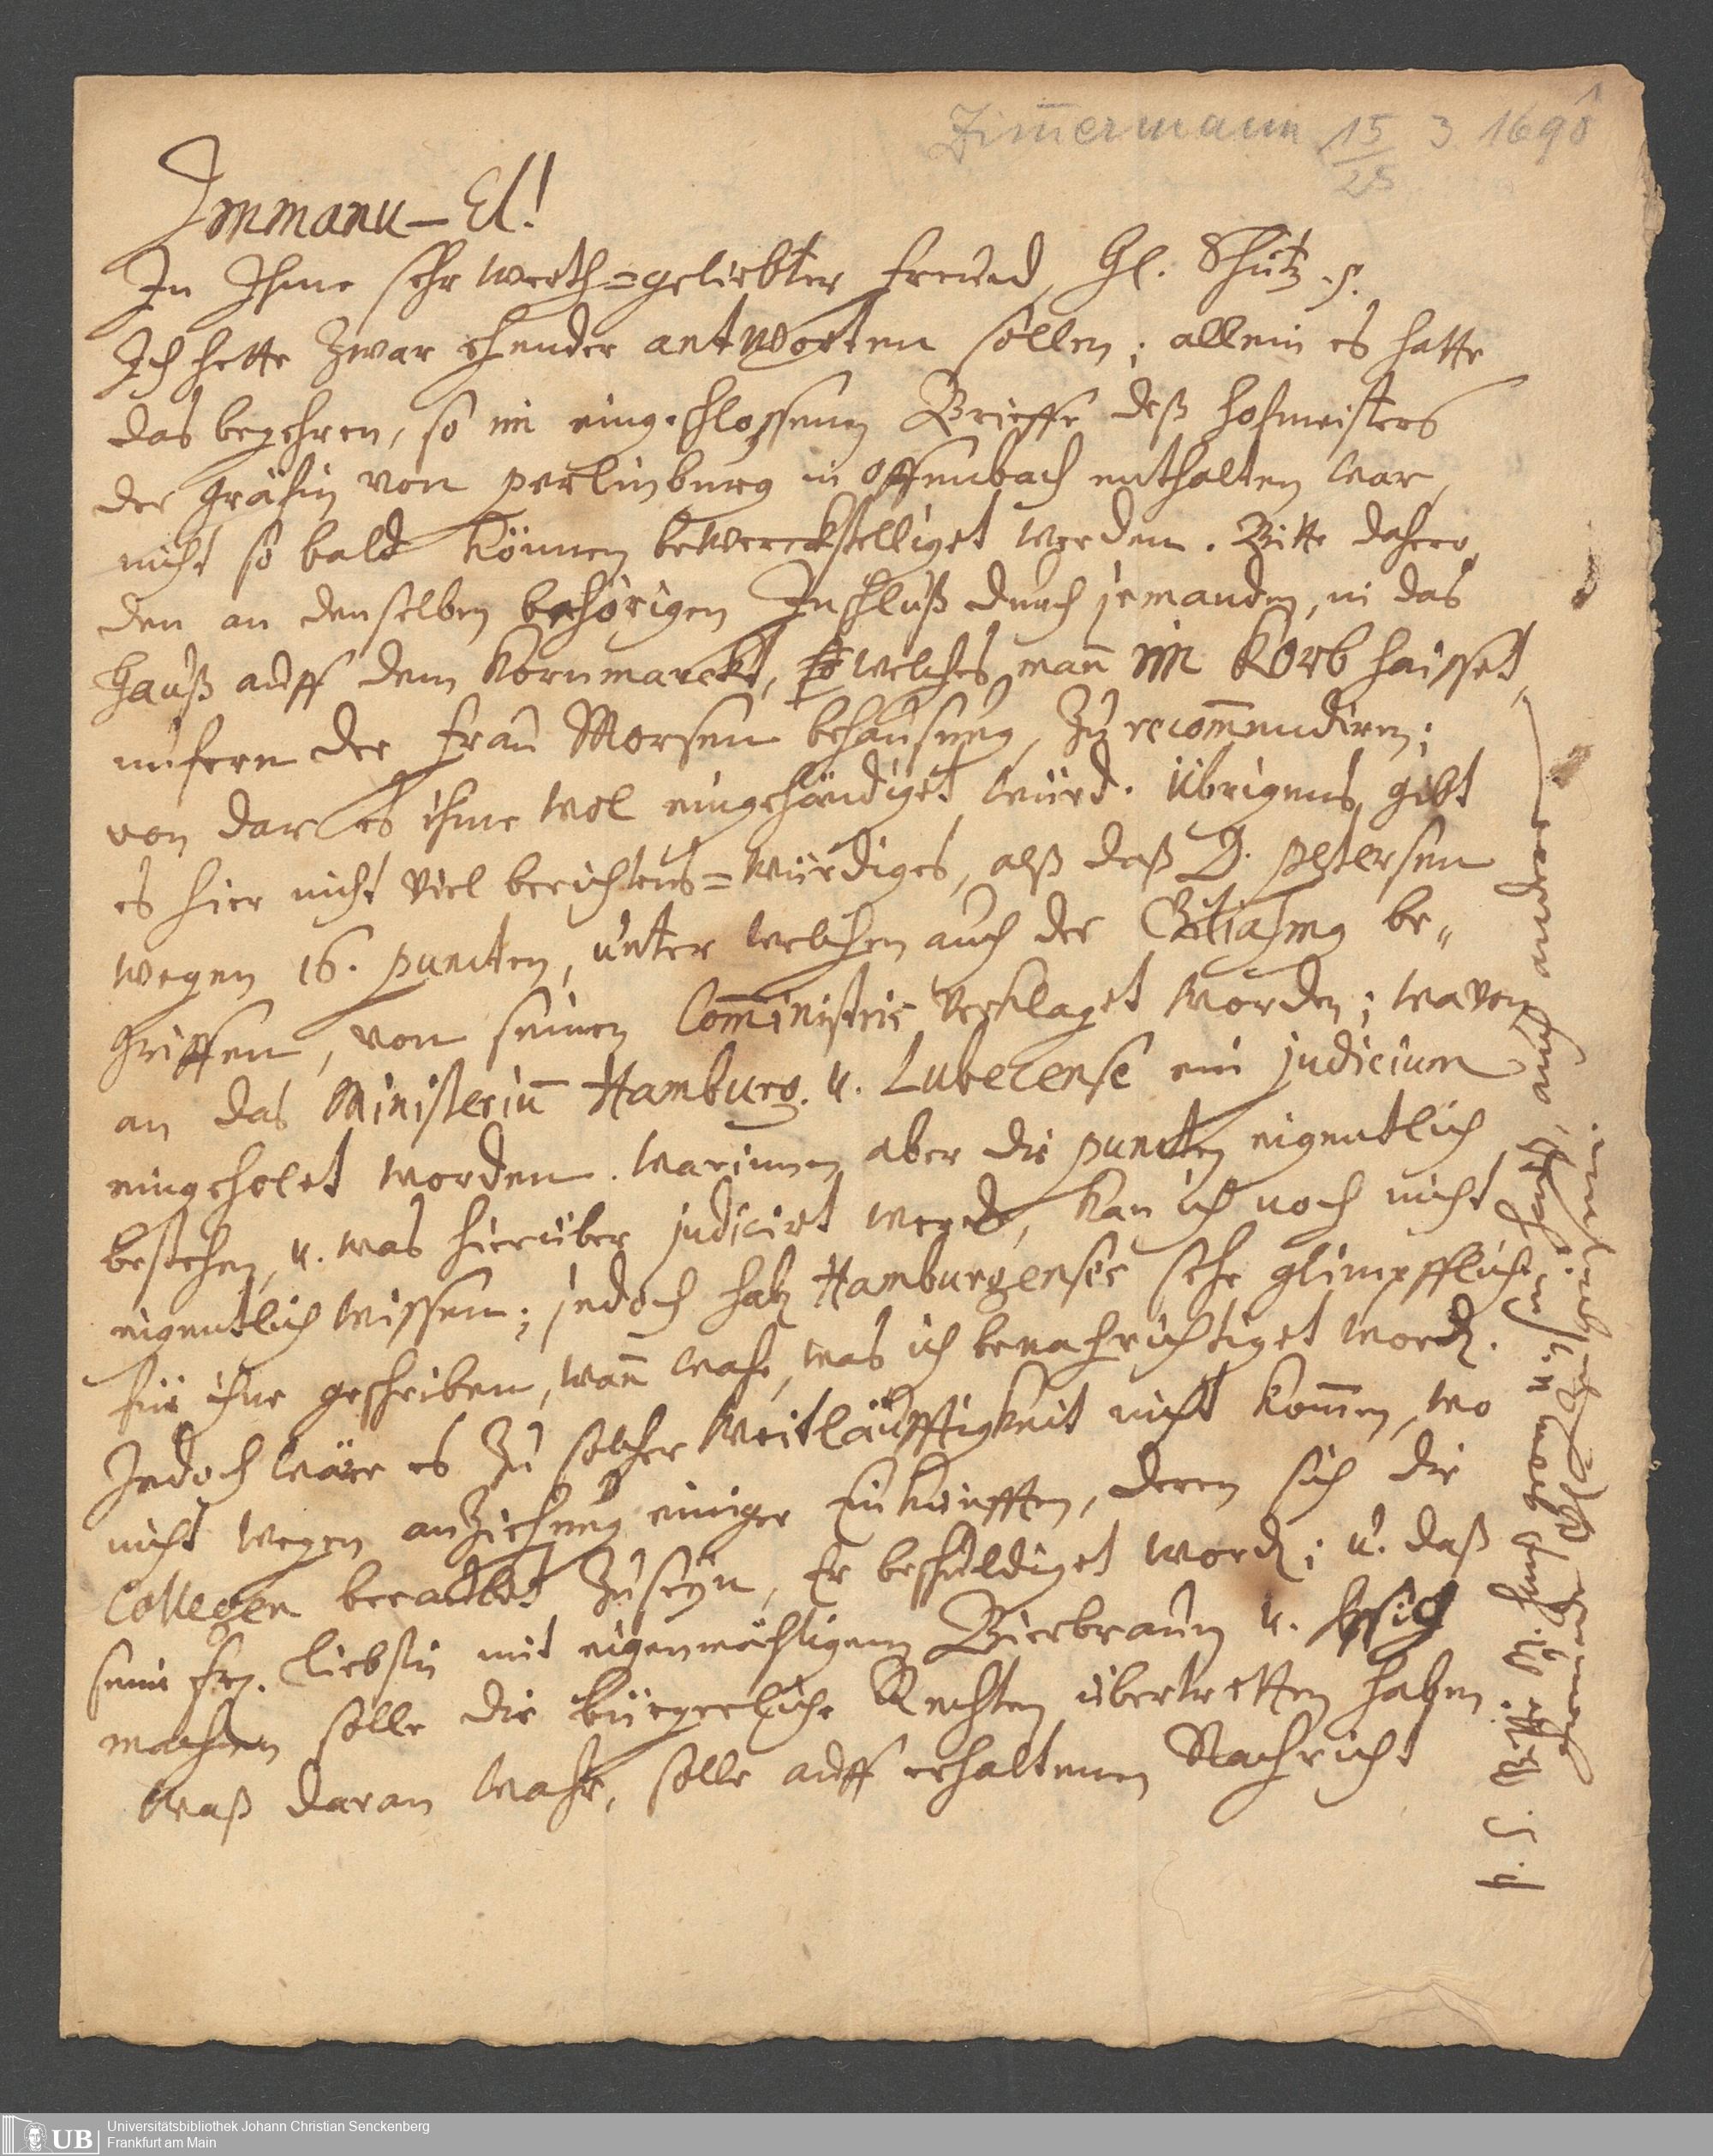 Zim̄ermann 15/25 3 1690
1
Immanu-El!
In Ihme sehr werth=geliebter Freund, Hl. Schütz. p.
Ich hette zwar ehender antworten sollen; allein es hatte
das begehren, so im eingeschlossenen Brieffe deß Hofmeisters
der Gräfin von perlinburg in Offenbach enthalten war,
nicht so bald können bewerckstelliget werden. Bitte dahero,
den an denselben behörigen Inschluß durch jemanden, in das
Hauß auff dem Kornmarckt, welches man̄ im Korb haisset,
unfern der Frau Morsen behausung, zu recom̄endiren;
von dar es ihme wol eingehändiget würd. Übrigens gibt
es hier nicht viel berichtens=würdiges, alß daß D. Petersen
wegen 16. puncten, unter welchen auch der Chiliasmus be„
griffen, von seinen Com̄inistris verklaget worden; wavon
an das Ministeriū Hamburg. u. Lubecense ein judicium
eingeholet worden. Warinnen aber die puncten eigentlich
bestehen, u. was hierüber judicirt werde, kan ich noch nicht
eigentlich wissen; jedoch haben Hamburgenses sehr glimpfflich
für ihne geschrieben, wan̄ wahr, was ich benachrichtiget word.
Jedoch wäre es zu solcher Weitläufftigkeit nicht kom̄en, wo
nicht wegen anziehung einiger Einkünfften, deren sich die
Collegen beraubet zu seyn, Er beschuldiget word; u. daß
seine Fr. Liebstin mit eigenmächtigem Bierbrauen u. Essig
machen solle die bürgerliche Rechten übertretten haben
Waß daran wahr, solle auff erhaltenen Nachricht
P. S. Bitte H. Hauß geg. und sein Hauß, auch andere
Freunde